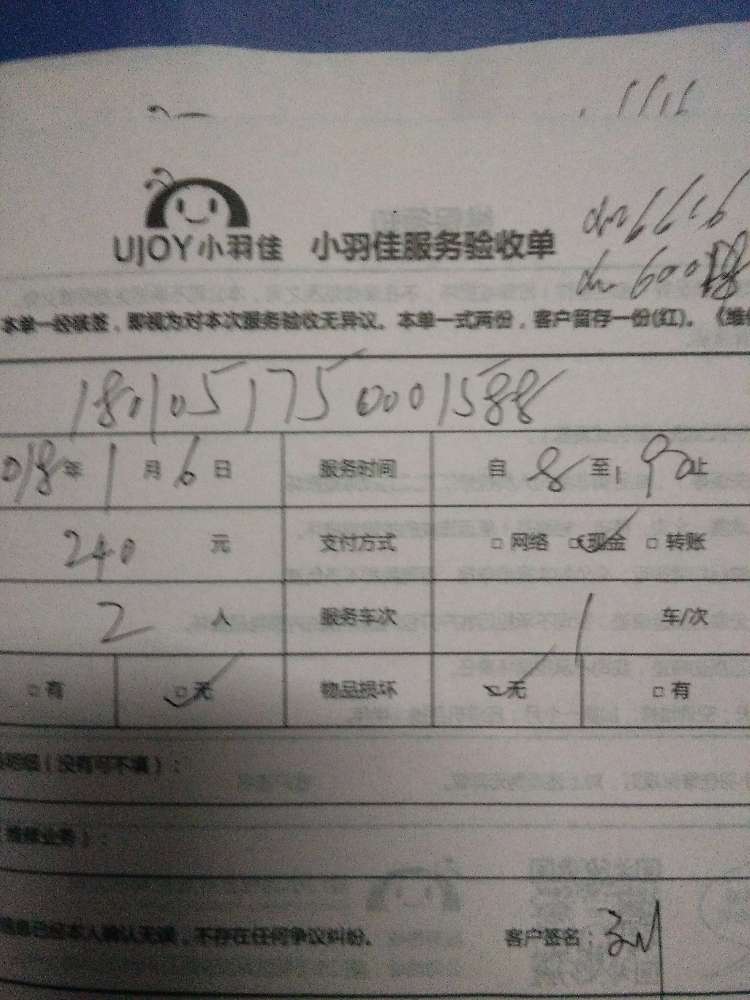 UJOY小羽佳 小羽佳服务验收单
本单一经核签，即视为对本次服务验收无异议。本单一式两份，客户留存一份(红)。《维
1801051750001588
018年1月6日 服务时间 自8至 止
240元 支付方式 □网络 □现金 □转账
2人 服务车次 1车/次
□有 □无 物品损坏 □无 □有
明细（没有可不填）：
维修业务）：
息已经本人确认无误，不存在任何争议纠纷。 客户签名：